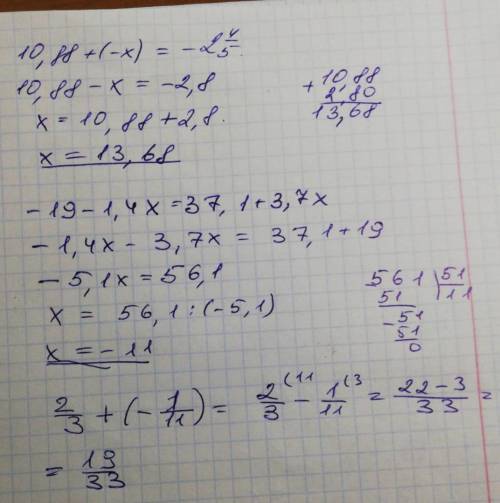 10,88 + (-x) = -2 4/5
10,88 - x = -2,8
x = 10,88 + 2,8
x = 13,68
+ 10,88
2,80
13,68
-19 - 1,4x = 37,1 + 3,7x
-1,4x - 3,7x = 37,1 + 19
-5,1x = 56,1
x = 56,1 : (-5,1)
x = -11
561 | 51
51 11
- 51
51
0
2/3 + (- 1/11) = 2/3 (11 - 1/11 (3 = 22-3/33 =
= 19/33